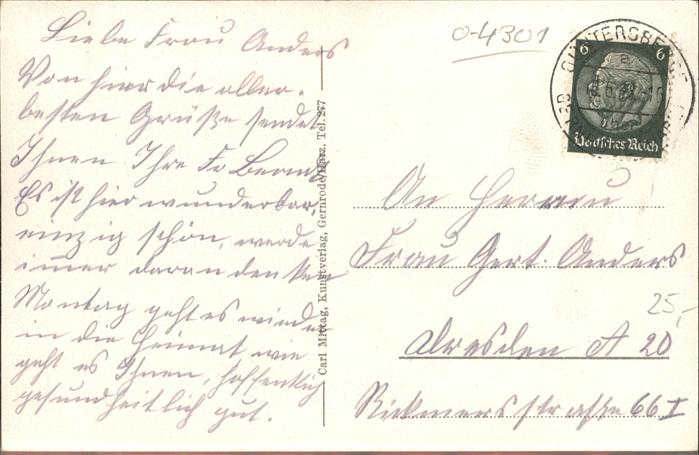 Liebe Frau Anders
Von hier die aller-
besten Grüße sendet
Ihnen Ihre Fr
Es ist hier wunderbar,
einzig schön, werde
imer daran denken
Montag geht es wieder
in die Heimat wie
geht es Ihnen, hoffentlich
gesundheitlich gut.
Carl Mittag, Kunstverlag, Gernrode/Harz. Tel. 277
0-4301
6 6
Deutsches Reich
An Herrn u
Frau Gert. Anders
25,-
Dresden A 20
Rickmersstraße 66 I